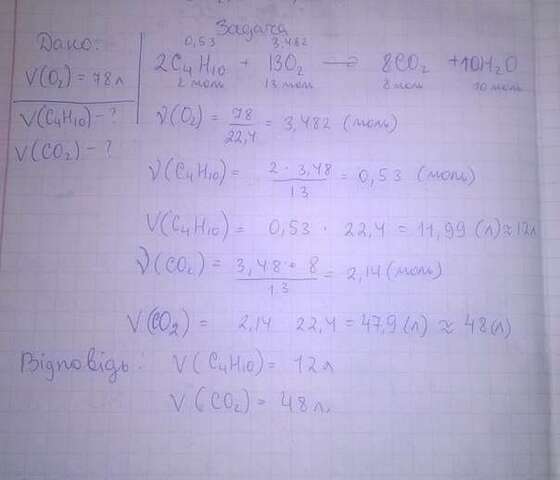 Задача
Дано:
V(O₂) = 78 л
V(C₄H₁₀) - ?
V(CO₂) - ?
0,53 3,482
2C₄H₁₀ + 13O₂ → 8CO₂ + 10H₂O
2 моль 13 моль 8 моль 10 моль
ν(O₂) = 78/22,4 = 3,482 (моль)
ν(C₄H₁₀) = 2 · 3,48/13 = 0,53 (моль)
V(C₄H₁₀) = 0,53 · 22,4 = 11,99 (л) ≈ 12л
ν(CO₂) = 3,48 · 8/13 = 2,14 (моль)
V(CO₂) = 2,14 22,4 = 47,9 (л) ≈ 48 (л)
Відповідь: V(C₄H₁₀) = 12 л
V(CO₂) = 48 л.